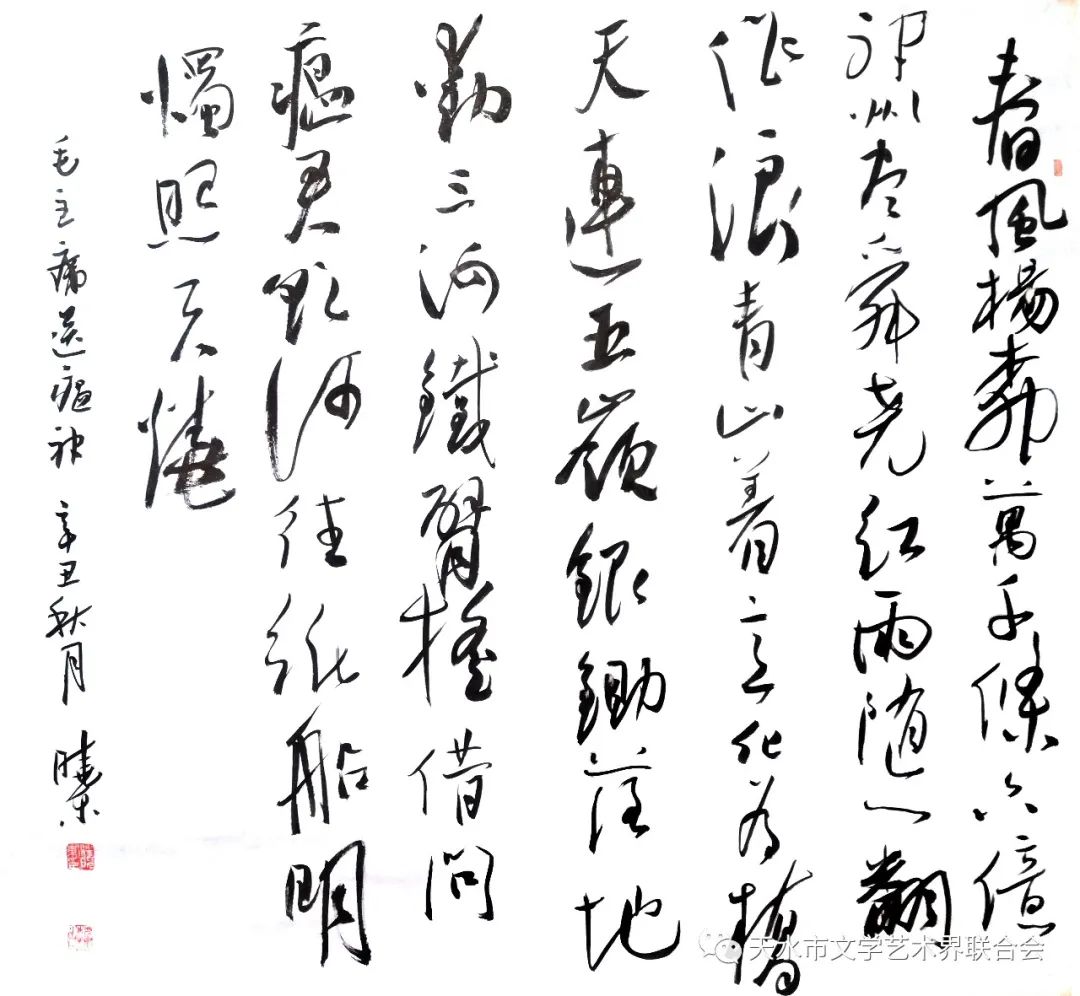 春風楊柳萬千條六億
神州尽舜尧红雨随心翻
作浪青山着意化为橋
天連五嶺銀鋤落地
動三河鐵臂搖借問
瘟君欲何往纸船明
燭照天燒
毛主席送瘟神 辛丑秋月
天水市文学艺术界联合会